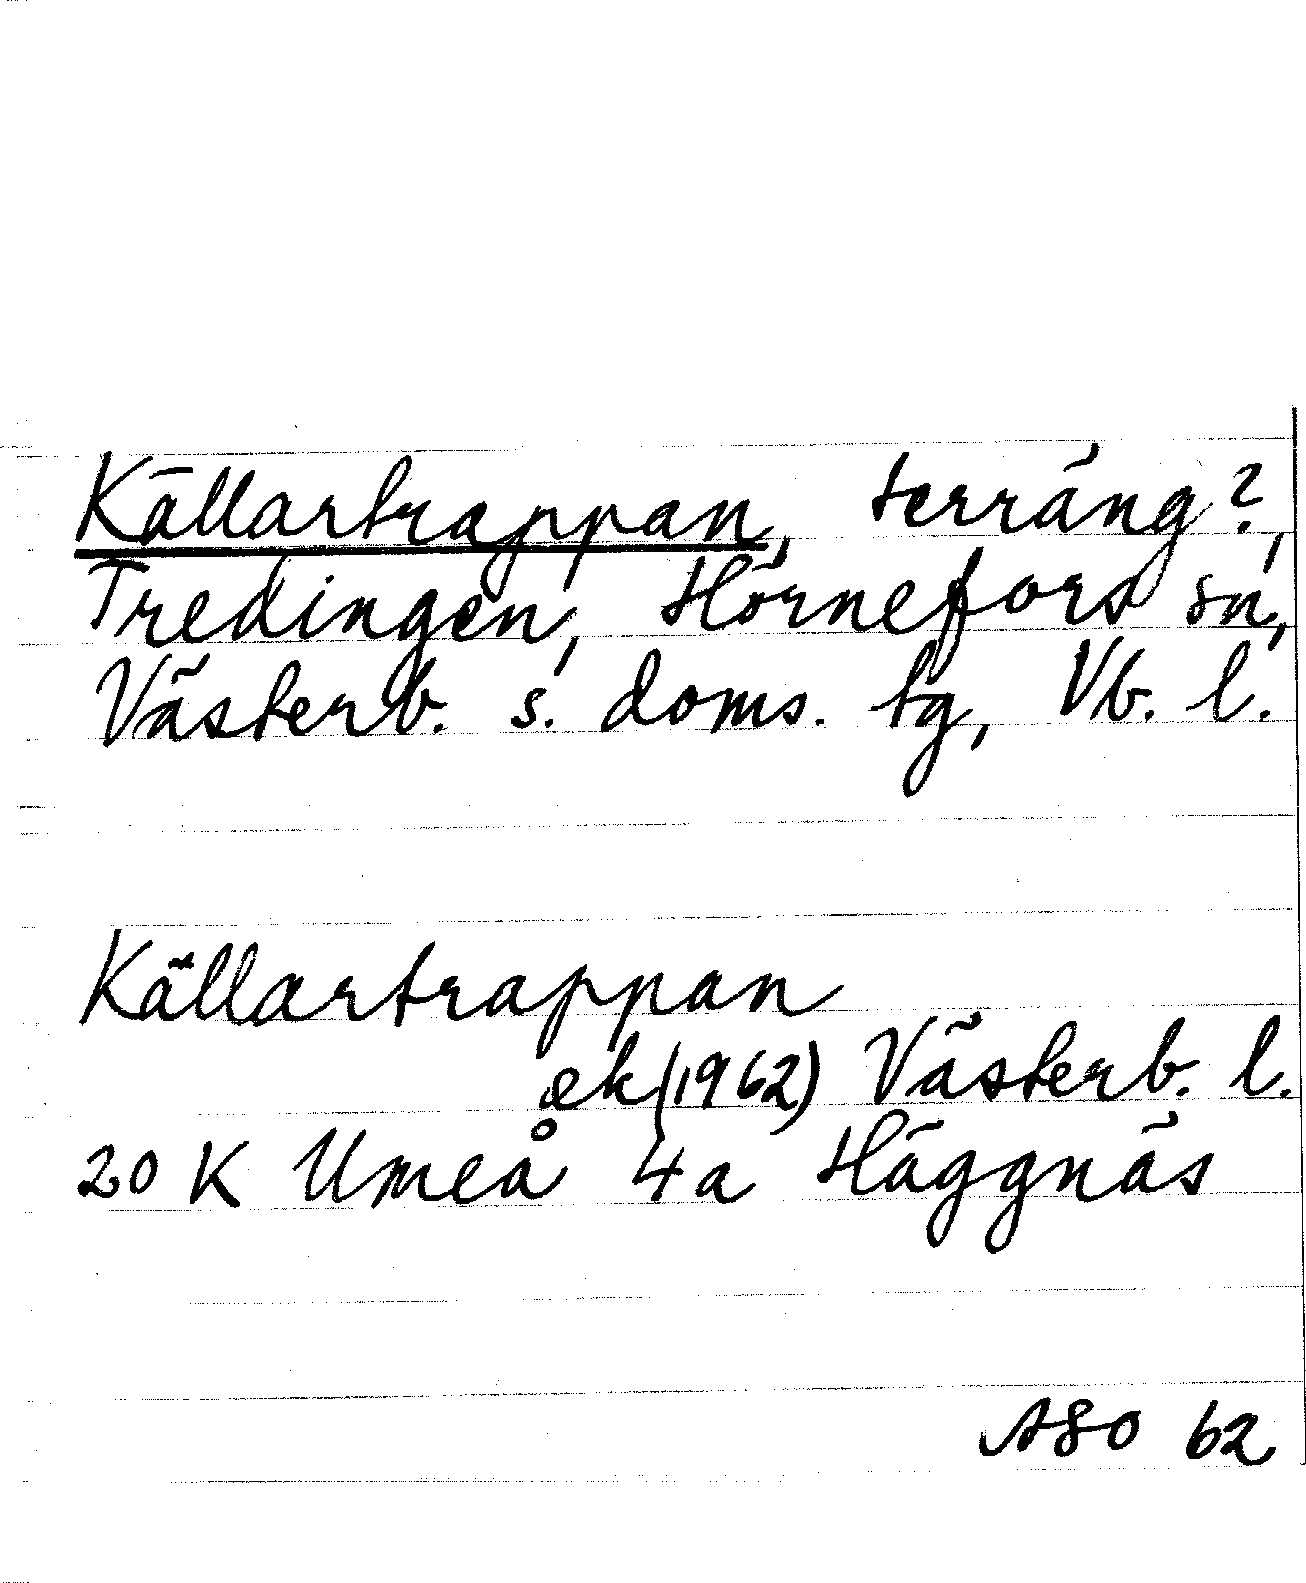 Källartrappan, terräng?,
Tredingen, Hörnefors sn,
Västerb. s. doms. tg, Vb. l.
Källartrappan
ek (1962) Västerb. l.
20 K Umeå 4a Häggnäs
ASO 62